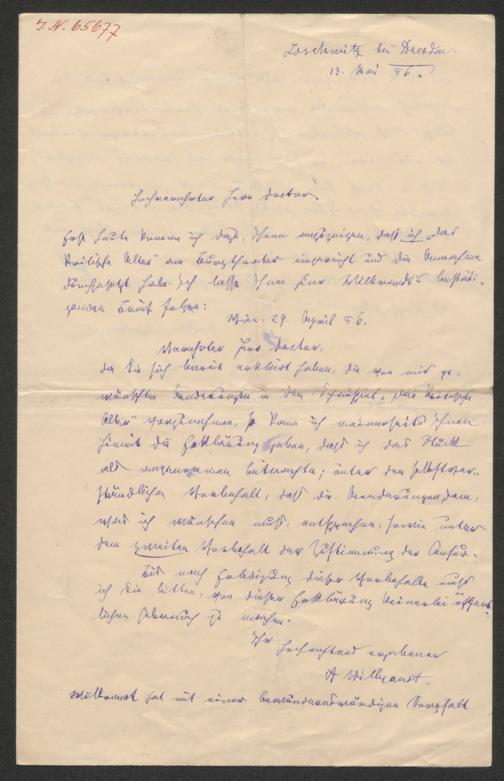 J.N. 65677
Loschwitz bei Dresden.
13. Mai 86.
Hochverehrter Herr Doctor.
Erst heute komme ich dazu, Ihnen anzuzeigen, daß ich „das
kritische Alter" am Burgtheater eingereicht und die Annahme
durchgesetzt habe. Ich lasse Ihnen hier Wilbrandt's bestäti-
genden Brief folgen:
Wien 29. April 86.
Verehrter Herr Doctor.
Da Sie sich bereit erklärt haben, die von mir ge-
wünschten Aenderungen in dem Schauspiel „das kritische
Alter" vorzunehmen, so kann ich meinerseits Ihnen
hiemit die Erklärung geben, daß ich das Stück
als angenommen betrachte; unter dem selbstver-
ständlichen Vorbehalt, daß die Aenderungen dem,
was ich wünschen muß, entsprechen, sowie unter
dem zweiten Vorbehalt der Zustimmung der Censur.
Bis nach Erledigung dieser Vorbehalte muß
ich Sie bitten, von dieser Erklärung keinerlei öffent-
lichen Gebrauch zu machen.
Ihr hochachtend ergebener
A Wilbrandt.
Wilbrandt hat mit einer bewundernswürdigen Sorgfalt